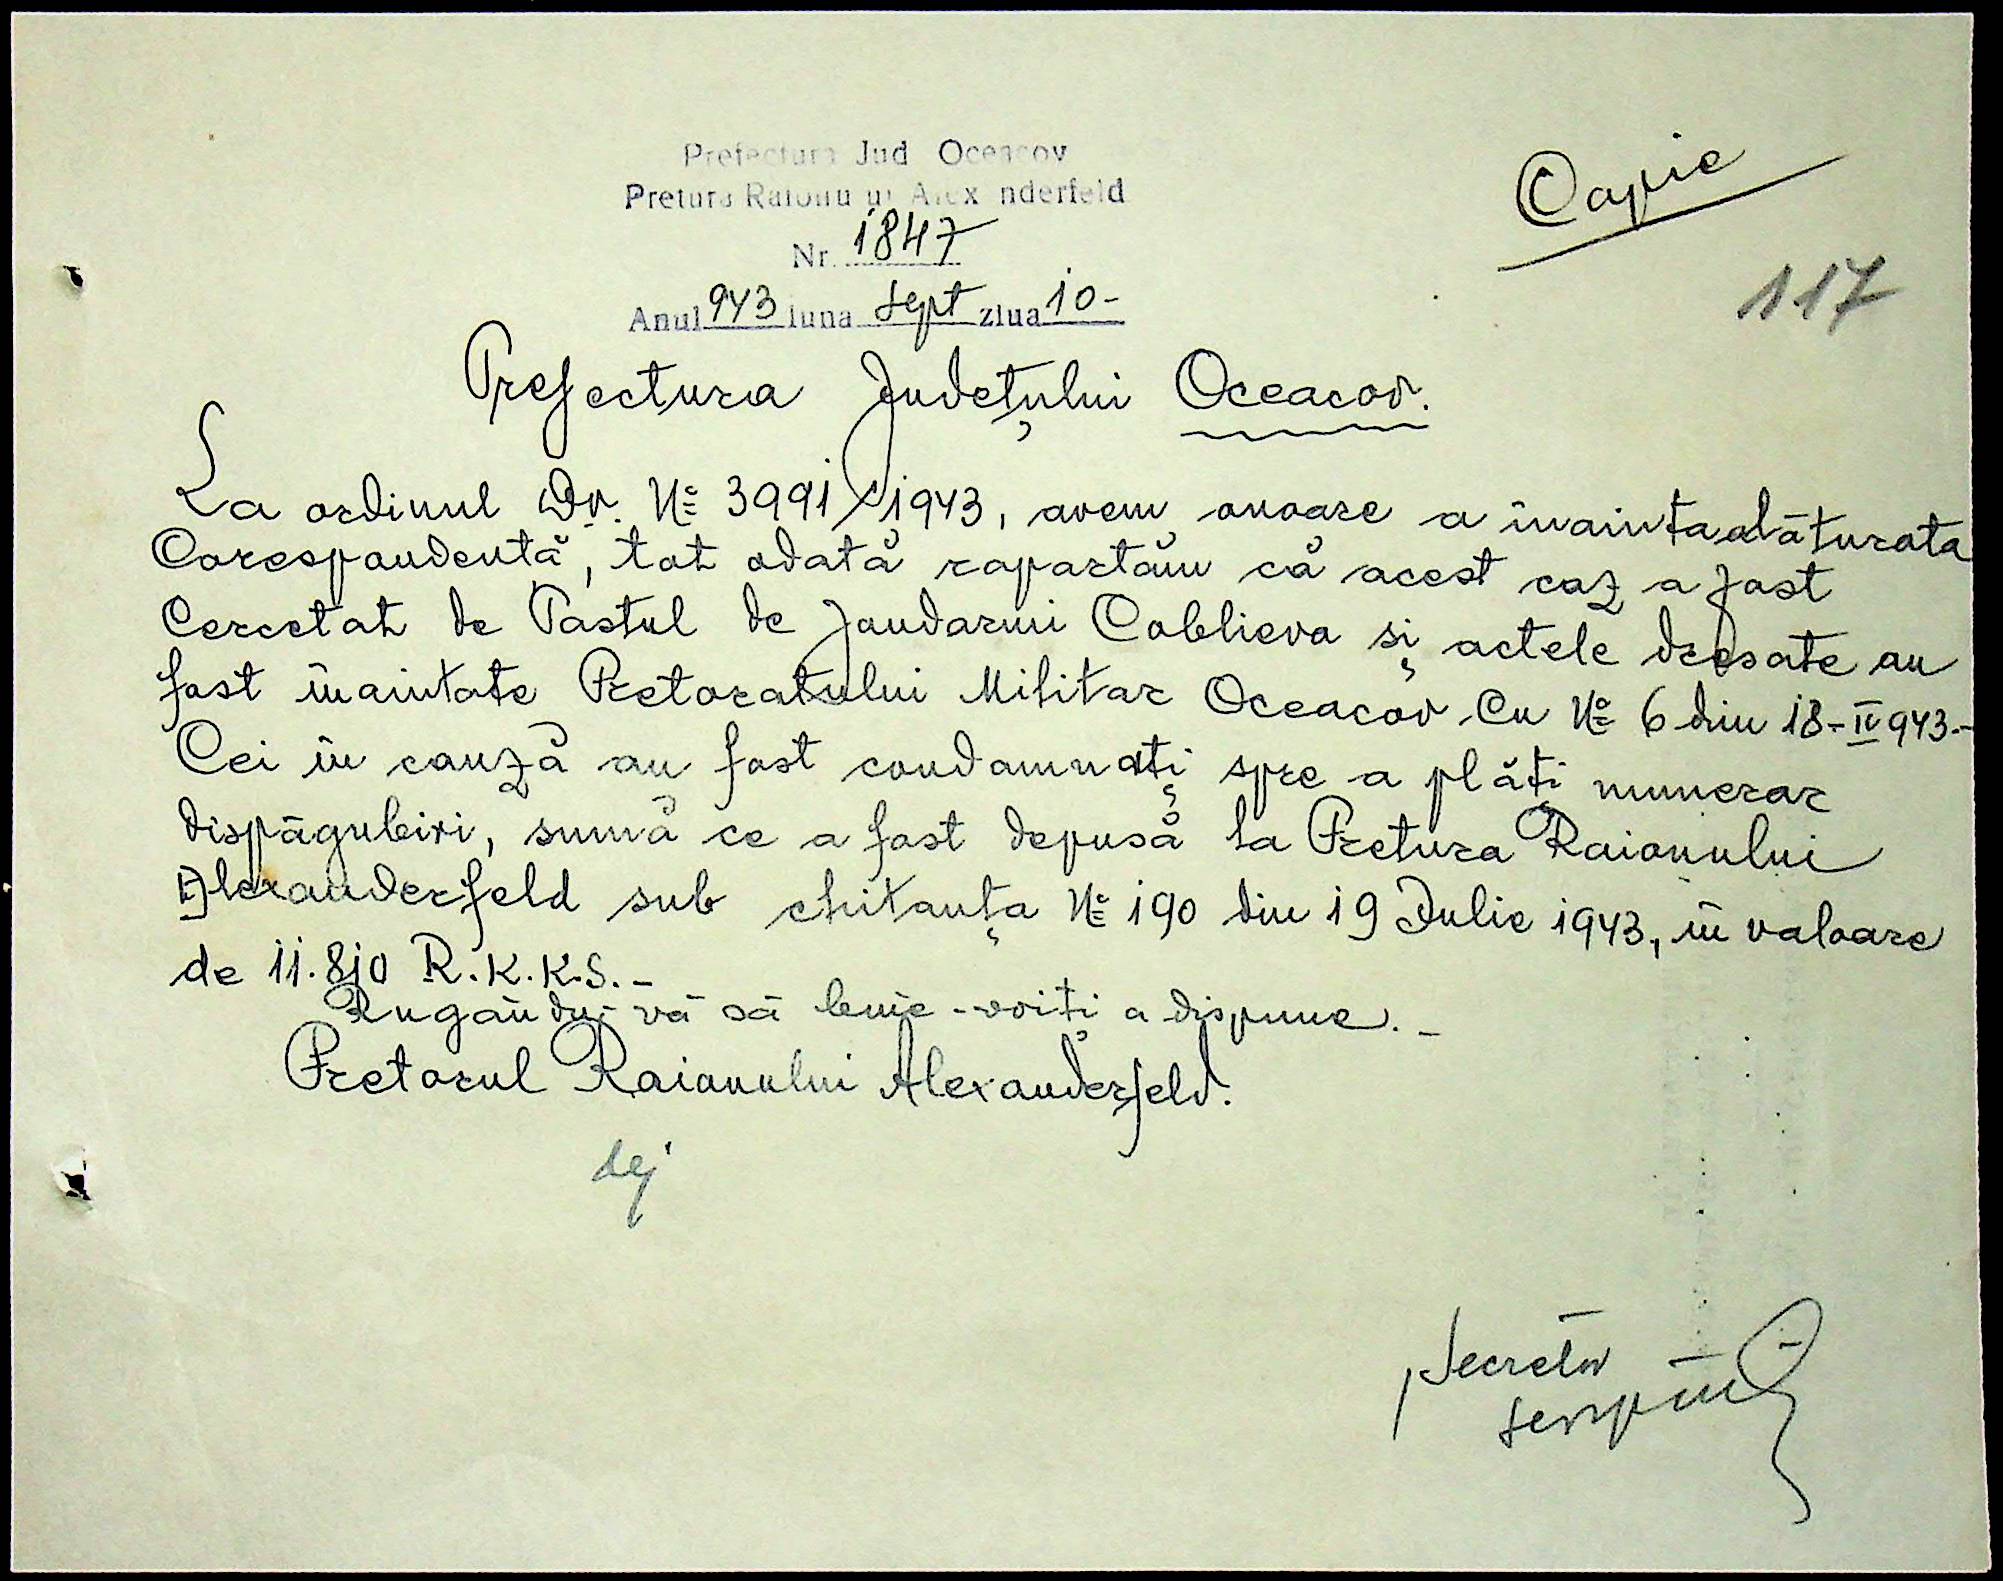 Prefectura Jud Oceacov
Pretura Raionului Alexanderfeld
Copie
Nr. 1847
117
Anul 943 luna Sept ziua 10-
Prefectura Județului Oceacov.
La ordinul Dv. № 3991/1943, avem onoare a înainta alăturata
Corespondentă, tot odată raportăm că acest caz a fost
Cercetat de Postul de Jandarmi Coblieva și actele dresate au
fost înaintate Pretoratului Militar Oceacov Cu № 6 din 18-IV 943.-
Cei în cauză au fost condamnați spre a plăți numerar
dispăgubiri, sumă ce a fost depusă la Pretura Raionului
Alexanderfeld sub chitanța № 190 din 19 Iulie 1943, în valoare
de 11.810 R.K.K.S.-
Rugându-vă să bine-voiți a dispune.-
Pretorul Raionului Alexanderfeld.
Secretar